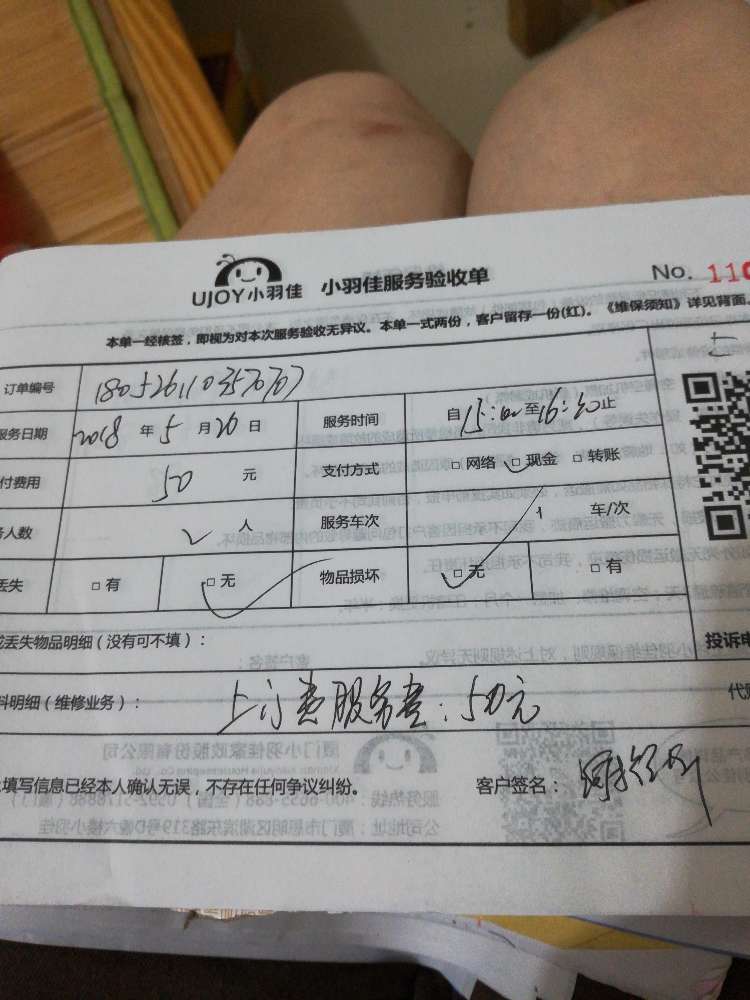 UJOY小羽佳 小羽佳服务验收单 No. 110
本单一经核签，即视为对本次服务验收无异议。本单一式两份，客户留存一份(红)。《维保须知》详见背面。
订单编号 180526110357070
服务日期 2018 年 5 月 26 日 服务时间 自 15:00 至 16:30 止
付费用 50 元 支付方式 □ 网络 □ 现金 □ 转账
务人数 2 人 服务车次 车/次
丢失 □ 有 □ 无 物品损坏 □ 无 □ 有
或丢失物品明细（没有可不填）：
投诉电
料明细（维修业务）： 上门费服务费：50元
填写信息已经本人确认无误，不存在任何争议纠纷。 客户签名：